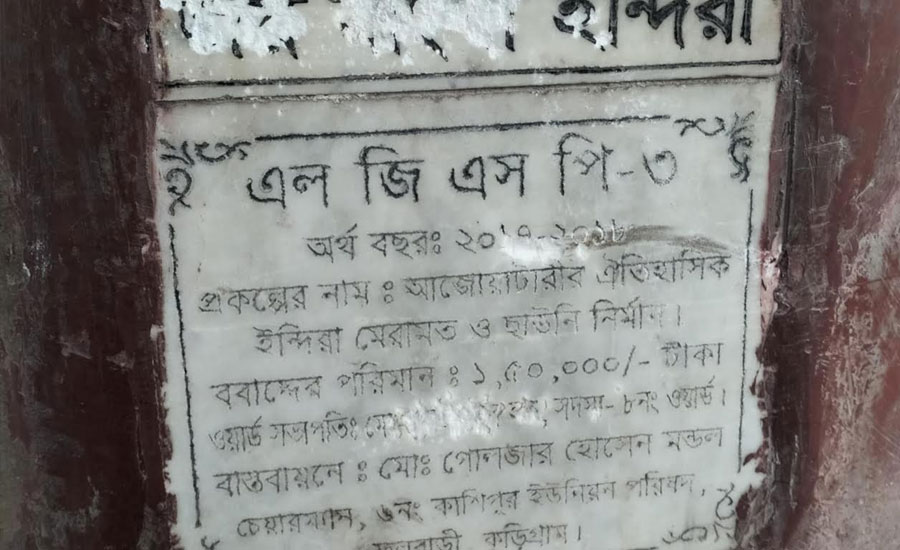 ইন্দিরা
এল জি এস পি-৩
অর্থ বছরঃ ২০১৭-২০১৮
প্রকল্পের নাম : আজোয়াটারীর ঐতিহাসিক
ইন্দিরা মেরামত ও ছাউনি নির্মান।
ববাদ্দের পরিমান : ১,৫০,০০০/- টাকা
ওয়ার্ড সভাপতিঃ সদস্য- ৮নং ওয়ার্ড।
বাস্তবায়নে : মোঃ গোলজার হোসেন মন্ডল
চেয়ারম্যান, ৬নং কাশিপুর ইউনিয়ন পরিষদ,
কুড়িগ্রাম।